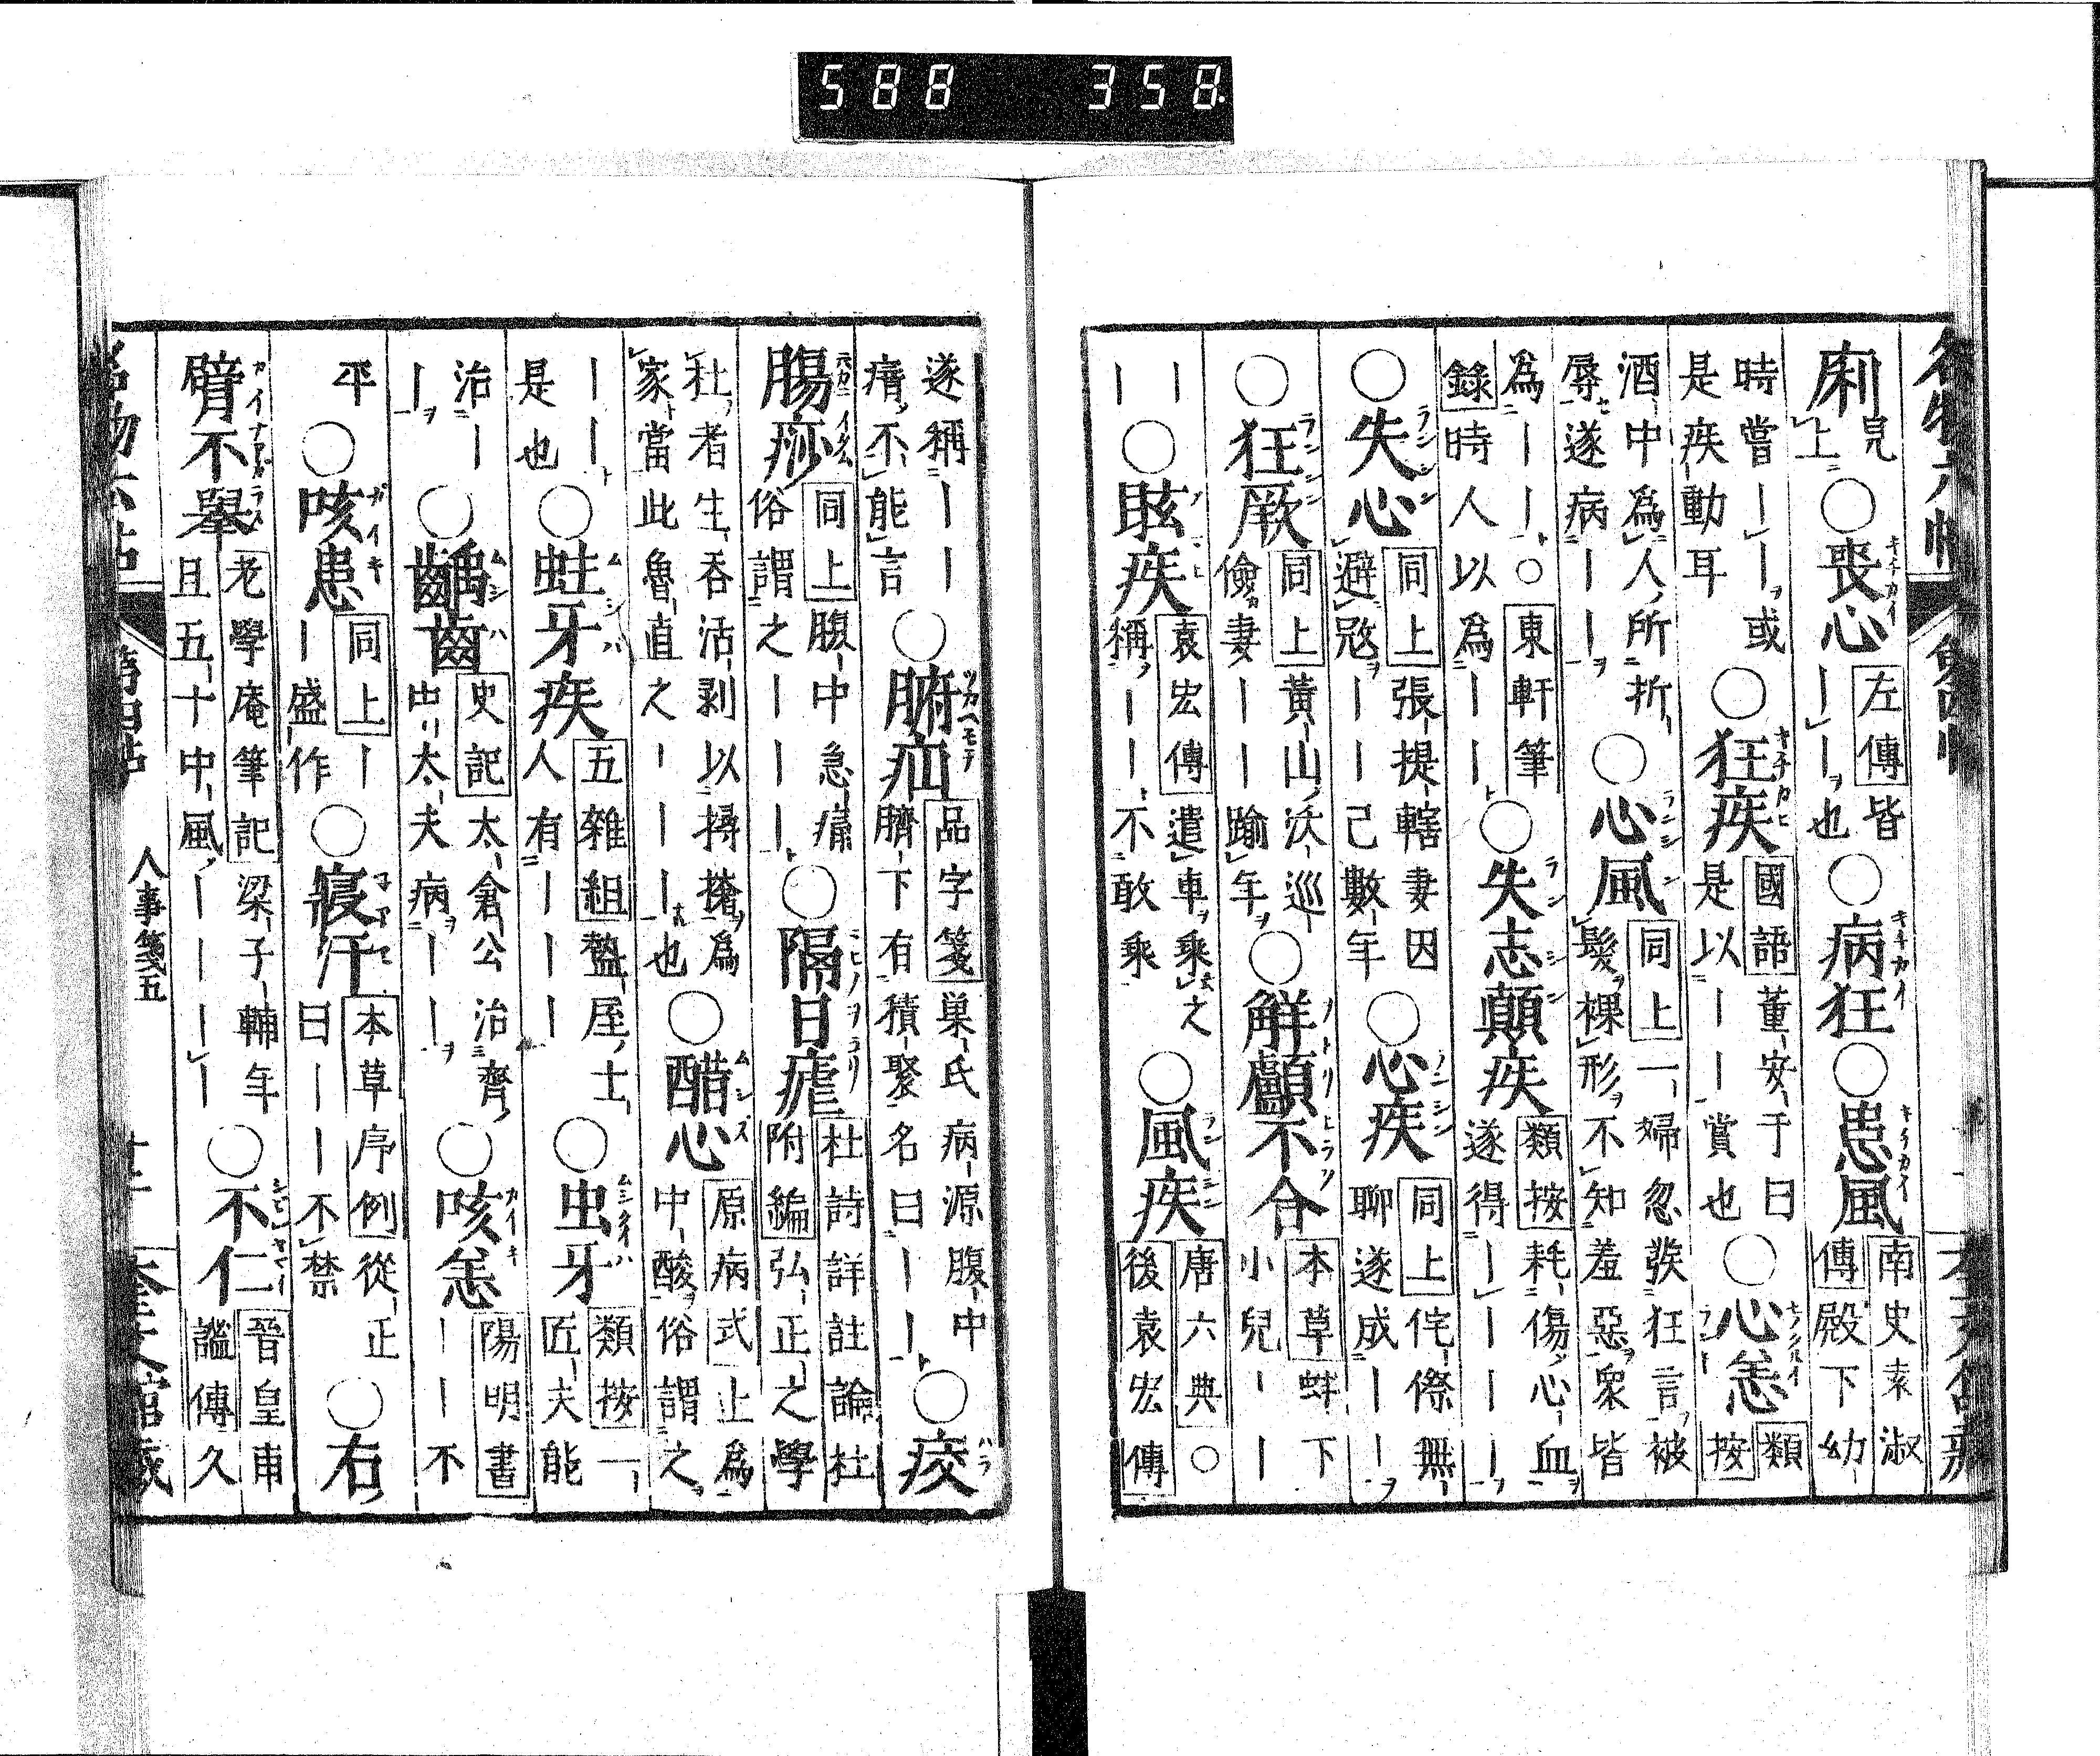 588 358
痢 見上 ○喪心 キチカイ 左傳 皆｜｜也 ○病狂 キチカイ ○患風 キチカイ 南史袁淑傳 殿下幼
時嘗｜｜或是疾動耳 ○狂疾 國語 董安于曰是以｜｜賞也 ○心恙 類按
酒中為人所折辱遂病｜｜ ○心風 ランシン 同上 一婦忽發狂言被髮裸形不知羞惡衆皆
為｜｜○東軒筆錄 時人以為｜｜ ○失志顛疾 ランシン 類按 耗傷心血遂得｜｜｜｜
○失心 ランシン 同上 張提轄妻因避寇｜｜已數年 ○心疾 同上 侘傺無聊遂成｜｜
○狂厥 ランシン 同上 黄山沃巡儉妻｜｜踰年 ○解顱不合 本草 蚌下小兒｜｜
｜｜ ○眩疾 袁宏傳 遣車乘之稱｜｜不敢乘 ○風疾 ランシン 唐六典 ○ 後袁宏傳
遂稱｜｜瘠不能言 ○腑疝 品字箋 巢氏病源腹中臍下有積聚名曰｜｜ ○疫
腸痧 同上 腹中急痛俗謂之｜｜｜ ○隔日瘧 杜詩詳註論杜附編 弘正之學
杜者生吞活剥以撏撦為家當此魯直之｜｜｜也 ○醋心 ムシズ 原病式 止為中酸俗謂之
｜｜是也 ○蛀牙疾 ムシバ 五雜組 盩厔士人有｜｜｜ ○虫牙 類按 一匠夫能
治｜｜ ○齲齒 ムシハ 史記 太倉公治齊中太夫病｜｜ ○咳恙 ガイキ 陽明書 ｜｜不
平 ○咳患 ガイキ 同上 ｜｜盛作 ○寢汗 本草序例 從正曰｜｜不禁 ○右
臂不舉 老學庵筆記 梁子輔年且五十中風｜｜｜｜ ○不仁 晉皇甫謐傳 久
人事箋五